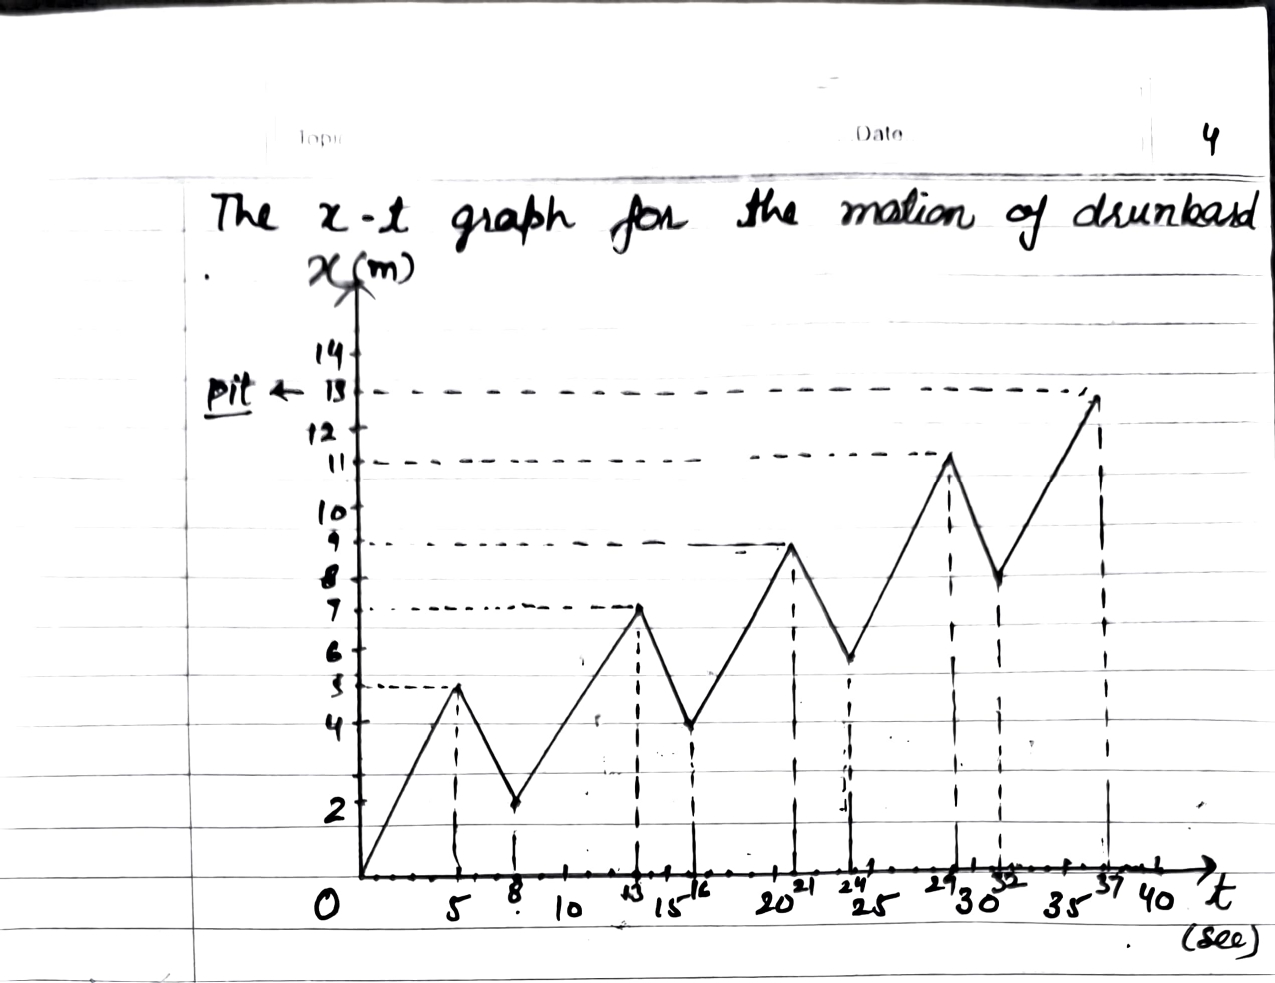 Topic
Date
4
The x-t graph for the motion of drunkard
x(m)
14
pit ← 13
12
11
10
9
8
7
6
5
4
2
0 5 8 10 13 15 16 20 21 24 25 29 30 32 35 37 40 t
(sec)